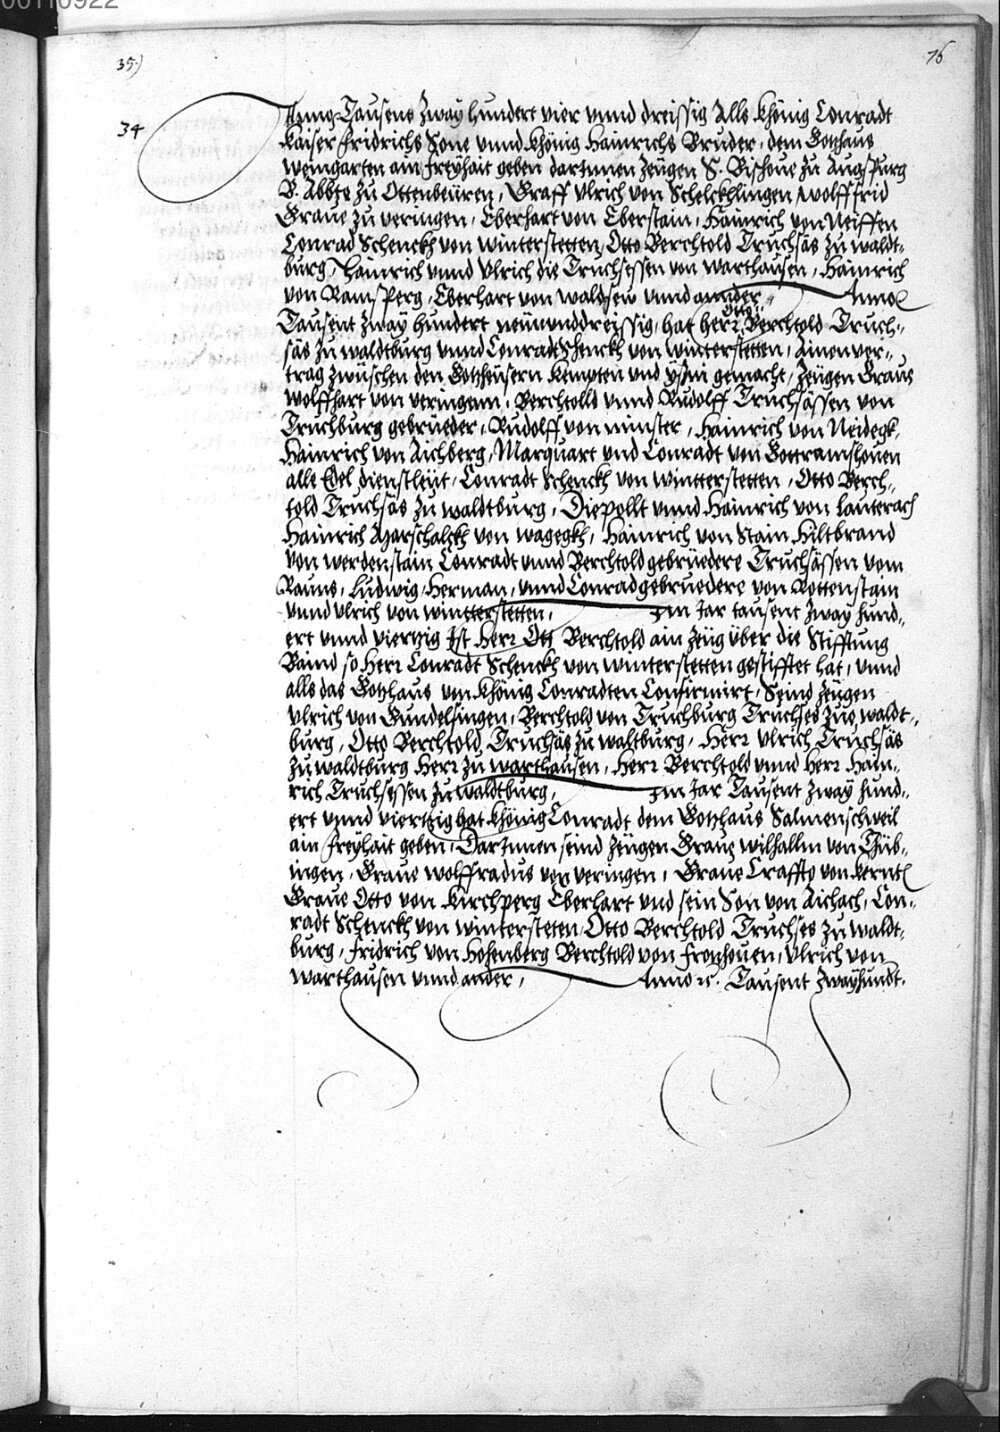 00110922
35)
76
34
Anno Tausent zway hundert vier vnnd dreissig Alls khönig Conradt
Kaiser fridrichs Sone vnnd khönig Hainrichs Bruder, dem Gotzhaus
Weingarten ain freyhait geben darinnen zeügen S. Bischoue zu AugsPurg
B. Abbte zu Ottenbeüren, Graff Vlrich von Schelckhlingen, wolffrid
Graue zu Veringen, Eberhart von Eberstain, Hainrich von Neiffen
Conrad Schenckh von Winterstetten, Otto Berchtold Truchsäs zu waldt„
burg, Hainrich vnnd Vlrich die Truchsessen von Warthausen, Hainrich
von RamsPerg, Eberhart von Waldsew vnnd annder, Anno
Tausent zway hundert neünunddreissig, hat herr Otto Berchtold Truch„
säs zu waldtburg vnnd Conradt Schenckh von Winterstetten, ainen ver„
trag zwüschen den Gotzheüsern Kempten vnd ysini gemacht, Zeügen Graue
Wolffhart von Veringenn, Berchtolld vnnd Rudolff Truchsässen von
Truchburg gebrüeder, Rudolff von minster, Hainrich von Neidegk,
Hainrich von Aichberg, Marquart vnd Conradt von Gottramshouen
alle Edel dienstleüt, Conradt Schenckh von Wintterstetten, Otto Berch„
told Truchsäs zu waldtburg, Diepollt vnnd Hainrich von Lauterach
Hainrich Marschalckh von wagegkh, Hainrich von Stain Hiltbrand
von werdenstain Conradt vnnd Berchtold gebrüedere Truchsässen vom
Rauns, Ludwig, Herman, vnnd Conrad gebruedere von Rottenstain
vnnd Vlrich von wintterstetten, Im Jar tausent zway hund„
ert vnnd viertzig Ist Herr Ott Berchtold ain zeüg über die Stifftung
Baind so Herr Conradt Schenckh von Winterstetten gestifftet hat, vnnd
alls das Gotzhaus von khönig Conradten Confirmirt, Seind zeügen
Vlrich von Gundelfingen, Berchtold von Truchburg Truchses zuo waldt„
burg, Otto Berchtold Truchsäs zu waltburg, Herr Vlrich Truchsäs
zu waldtburg Herr zu warthausen, Herr Berchtold vnnd Herr Hain„
rich Truchsessen zu waldtburg, Im Jar Tausent zway hund„
ert vnnd viertzig hat khönig Conradt dem Gotzhaus Salmenschweil
ain freyhait geben, Darinnen seind zeügen Graue wilhalm von Tüb„
ingen, Graue wolffradus von veringen, Graue Craffto von
Graue Otto von Kirchperg Eberhart vnd sein Son von Aichach, Con„
radt Schenckh von Winterstetten, Otto Berchtold Truchses zu waldt„
burg, fridrich von Hohenberg Berchtold von fronhouen, Vlrich von
warthausen vnnd ander, Anno rc. Tausent zwayhundt.